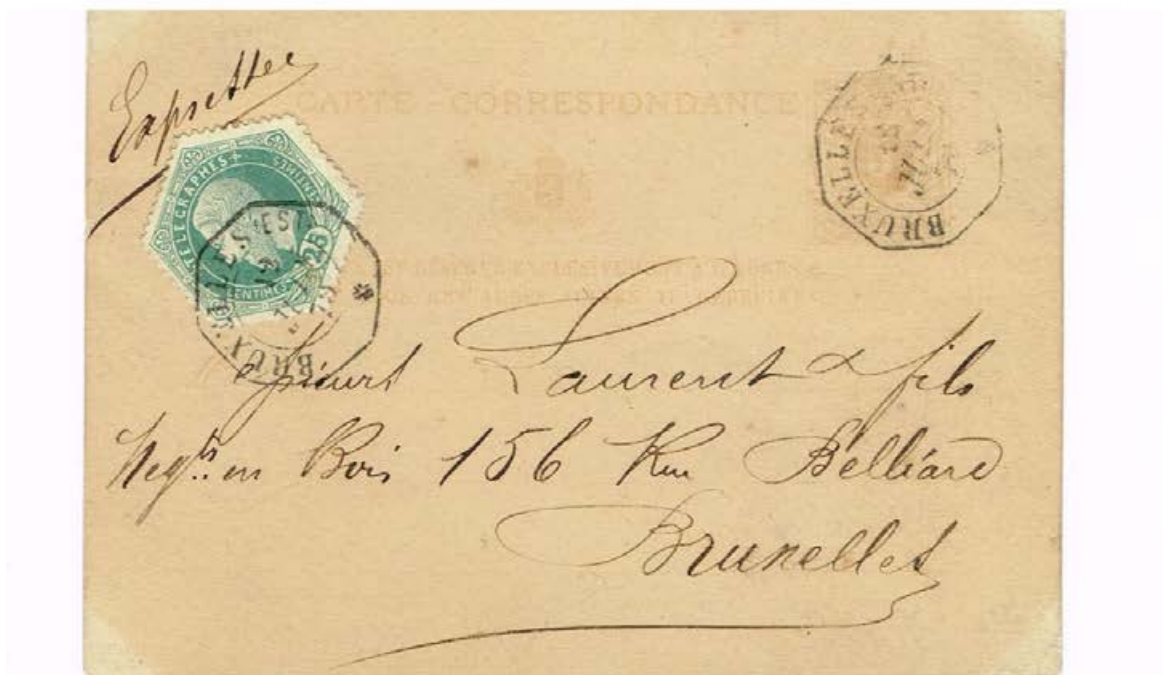 Expresse
CARTE-CORRESPONDANCE
TÉLÉGRAPHES
CENTIMES
25
CENTIMES
BRUXELLES (EST
BRUXELLES
Laurent & fils
Negts. en Bois 156 Rue Belliard
Bruxelles